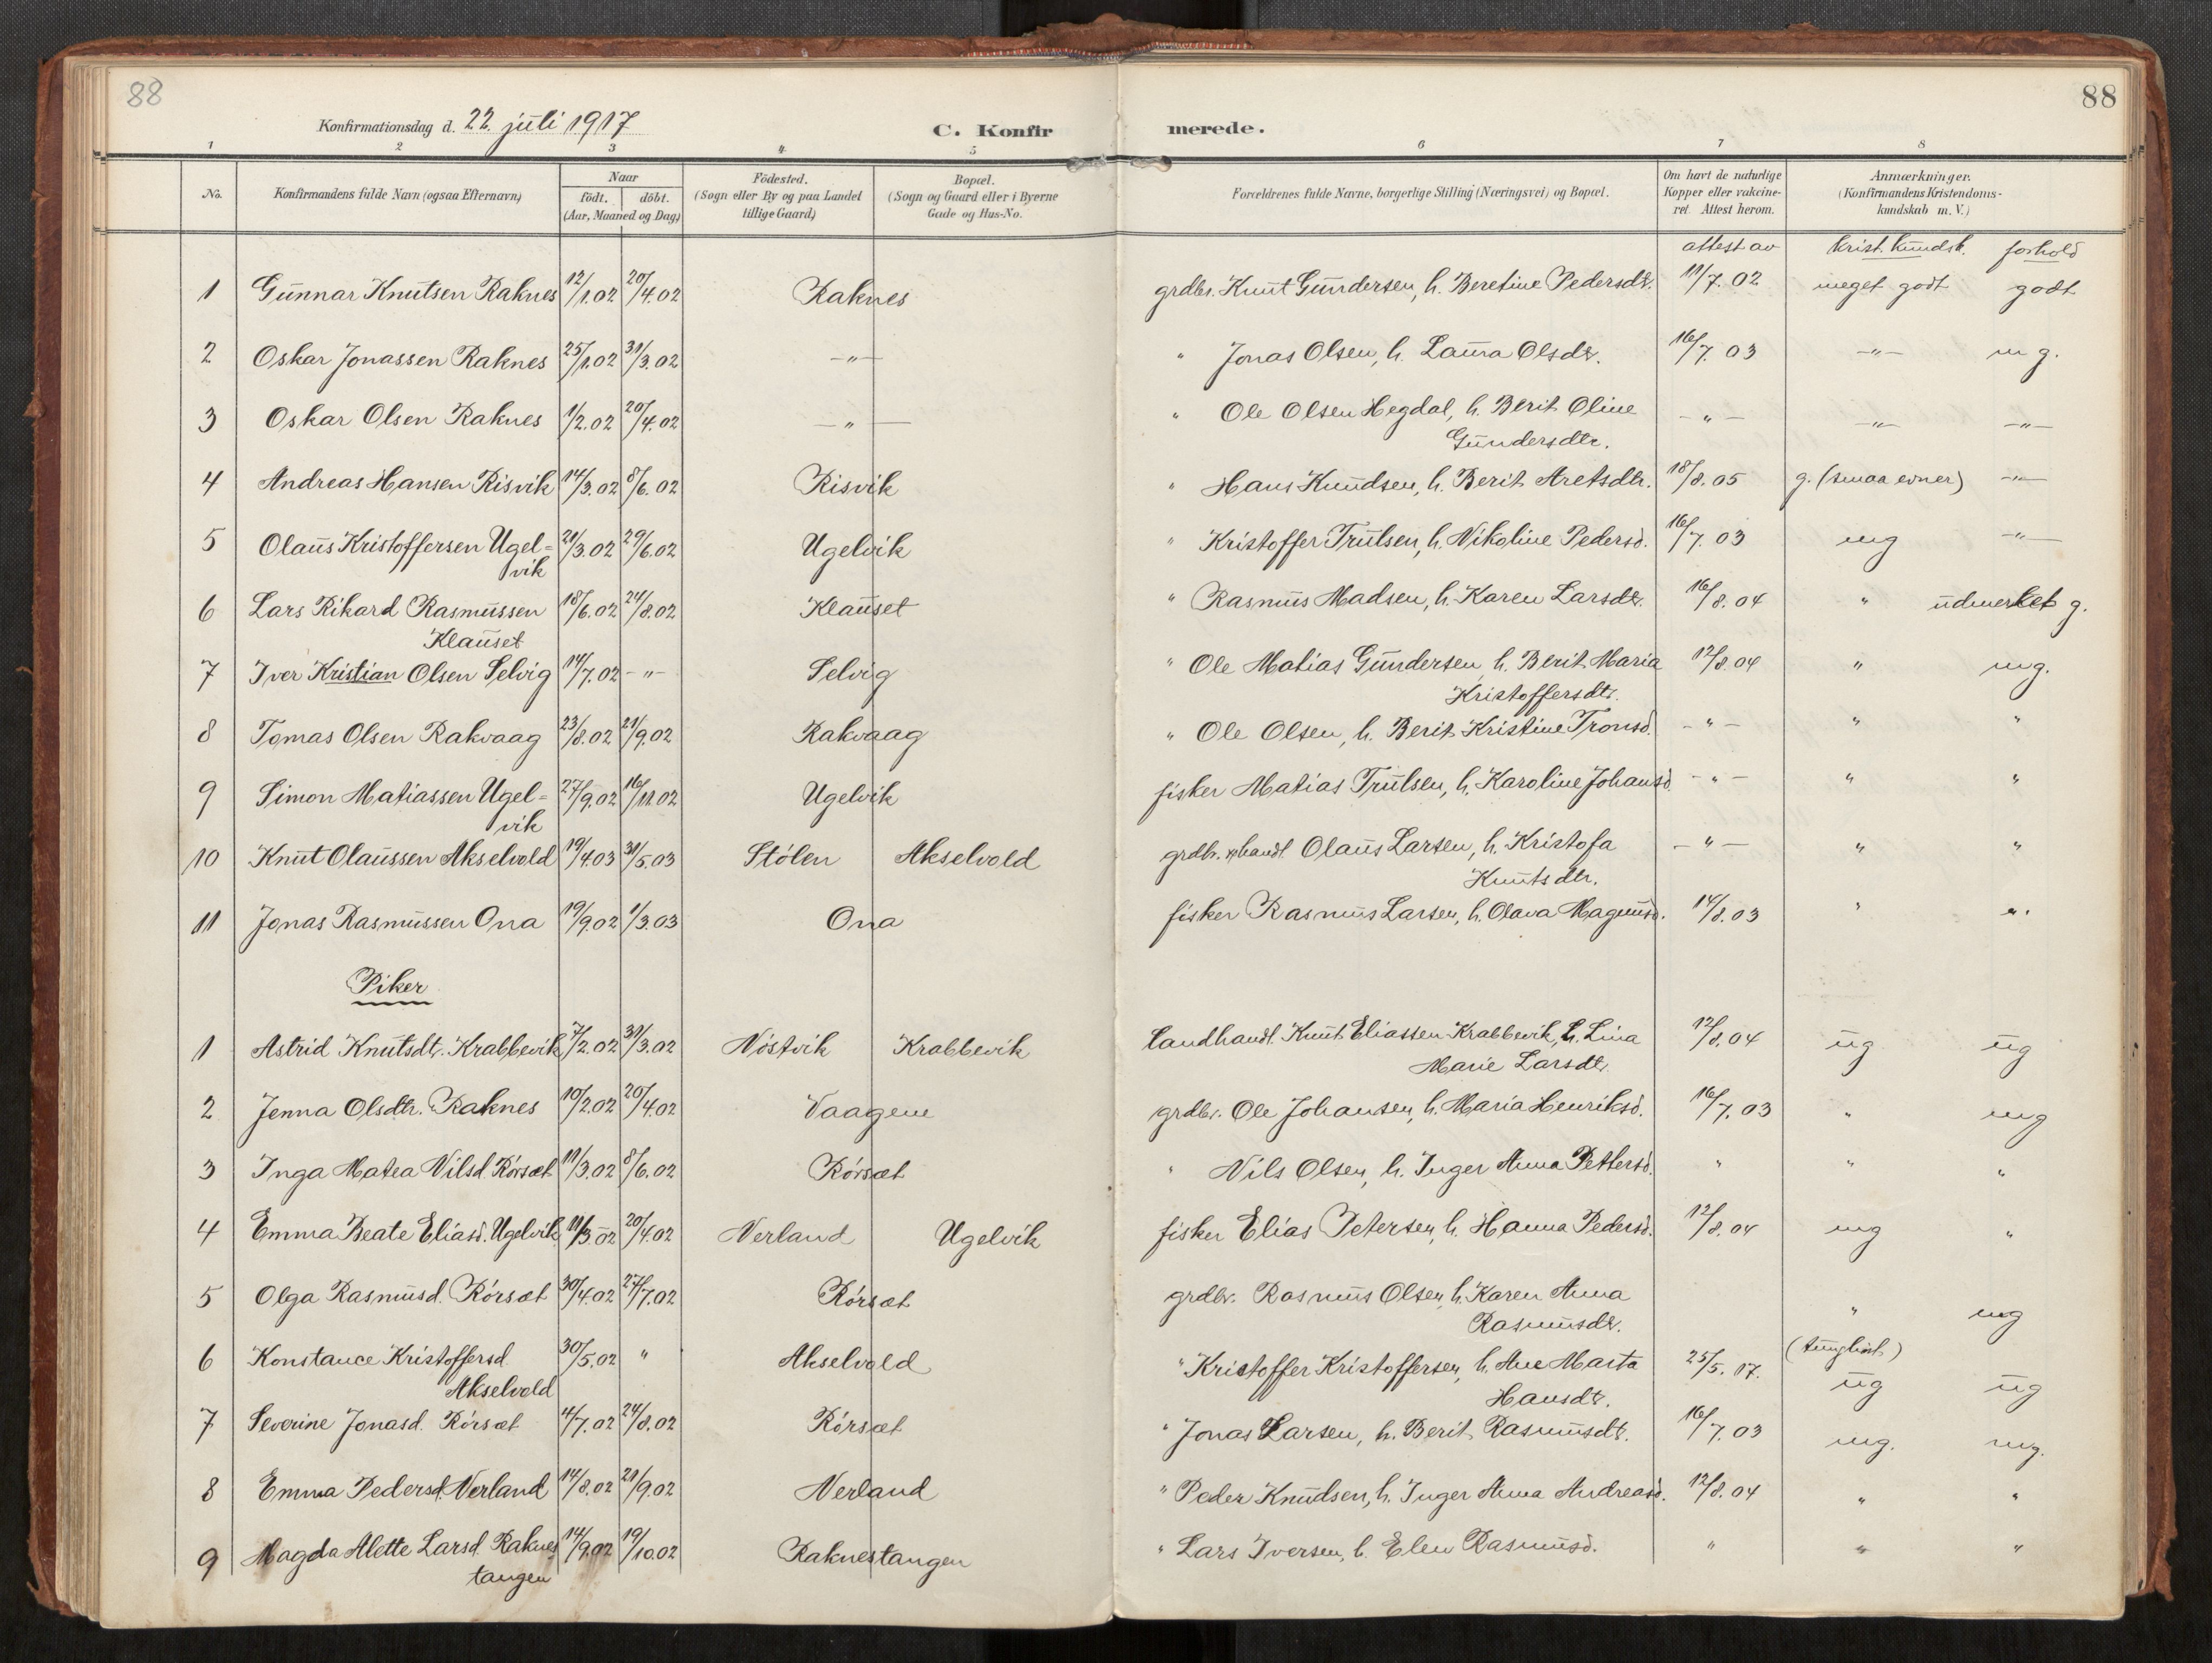 88
88
Konfirmationsdag d. 22. juli 1917
C. Konfirmerede.
1 2 3 4 5 6 7 8
No. Konfirmandens fulde Navn (ogsaa Efternavn) Naar födt. döbt. (Aar, Maaned og Dag) Födested. (Sogn eller By og paa Landet tillige Gaard) Bopæl. (Sogn og Gaard eller i Byerne Gade og Hus-No. Forældrenes fulde Navne, borgerlige Stilling (Næringsvei) og Bopæl. Om havt de naturlige Kopper eller vakcineret. Attest herom. Anmærkninger. (Konfirmandens Kristendomskundskab m. V.)
attest av krist. kundsk. forhold
1 Gunnar Knutsen Raknes 12/1.02 20/4.02 Raknes grdbr. Knut Gundersen, h. Beretine Pedersdtr. 11/7.02 meget godt godt
2 Oskar Jonassen Raknes 25/1.02 31/3.02 -"- " Jonas Olsen, h. Laura Olsdtr. 16/7.03 -"- m g.
3 Oskar Olsen Raknes 1/2.02 20/4.02 -"- " Ole Olsen Hegdal, h. Berit Oline -"- -"- -"-
Gundersdtr.
4 Andreas Hansen Risvik 14/3.02 8/6.02 Risvik " Hans Knudsen, h. Berit Aretsdtr. 18/8.05 g. (smaa evner) -"-
5 Olaus Kristoffersen Ugel= 21/3.02 29/6.02 Ugelvik " Kristoffer Trulsen, h. Nikoline Pedersd. 16/7.03 mg -"-
vik
6 Lars Rikard Rasmussen 18/6.02 24/8.02 Klauset " Rasmus Madsen, h. Karen Larsdtr. 16/8.04 " udmerket g.
Klauset
7 Iver Kristian Olsen Selvig 14/7.02 -"- Selvig " Ole Matias Gundersen, h. Berit Maria 12/8.04 " mg.
Kristoffersdtr.
8 Tomas Olsen Rakvaag 23/8.02 21/9.02 Rakvaag " Ole Olsen, h. Berit Kristine Tronsd. -"- " "
9 Simon Matiassen Ugel= 27/9.02 16/11.02 Ugelvik fisker Matias Trulsen, h. Karoline Johansd. -"- " "
vik
10 Knut Olaussen Akselvold 19/4.03 31/5.03 Stölen Akselvold grdbr. & handl. Olaus Larsen, h. Kristofa -"- " "
Knutsdtr.
11 Jonas Rasmussen Ona 19/9.02 1/3.03 Ona fisker Rasmus Larsen, h. Olava Magnusd. 14/8.03 " "
Piker
1 Astrid Knutsdtr. Krabbevik 7/2.02 31/3.02 Nöstvik Krabbevik landhandl. Knut Eliassen Krabbevik, h. Lina 12/8.04 ug ug
Marie Larsdtr.
2 Jenna Olsdtr. Raknes 10/2.02 20/4.02 Vaagene grdbr. Ole Johansen, h. Maria Henriksd. 16/7.03 " mg
3 Inga Matea Nilsd. Rörsæt 11/3.02 8/6.02 Rörsæt " Nils Olsen, h. Inger Anna Pettersd. " " "
4 Emma Beate Eliasd. Ugelvik 11/3.02 20/4.02 Nerland Ugelvik fisker Elias Petersen, h. Hanna Pedersd. 12/8.04 mg "
5 Olga Rasmusd. Rörsæt 30/4.02 27/7.02 Rörsæt grdbr. Rasmus Olsen, h. Karen Anna " mg
Rasmusdtr.
(tunghört)
6 Konstance Kristoffersd. 30/5.02 " Akselvold " Kristoffer Kristoffersen, h. Ane Marta 25/5.17. ug ug
Akselvold Hansdtr.
7 Severine Jonasd. Rörsæt 4/7.02 24/8.02 Rörsæt " Jonas Larsen, h. Berit Rasmusdtr. 16/7.03 mg. mg.
8 Emma Pedersd. Nerland 14/8.02 21/9.02 Nerland " Peder Knudsen, h. Inger Anna Andreasd. 12/8.04 " "
9 Magda Alette Larsd. Raknes 14/9.02 19/10.02 Raknestangen " Lars Iversen, h. Elen Rasmusd. " " "
tangen